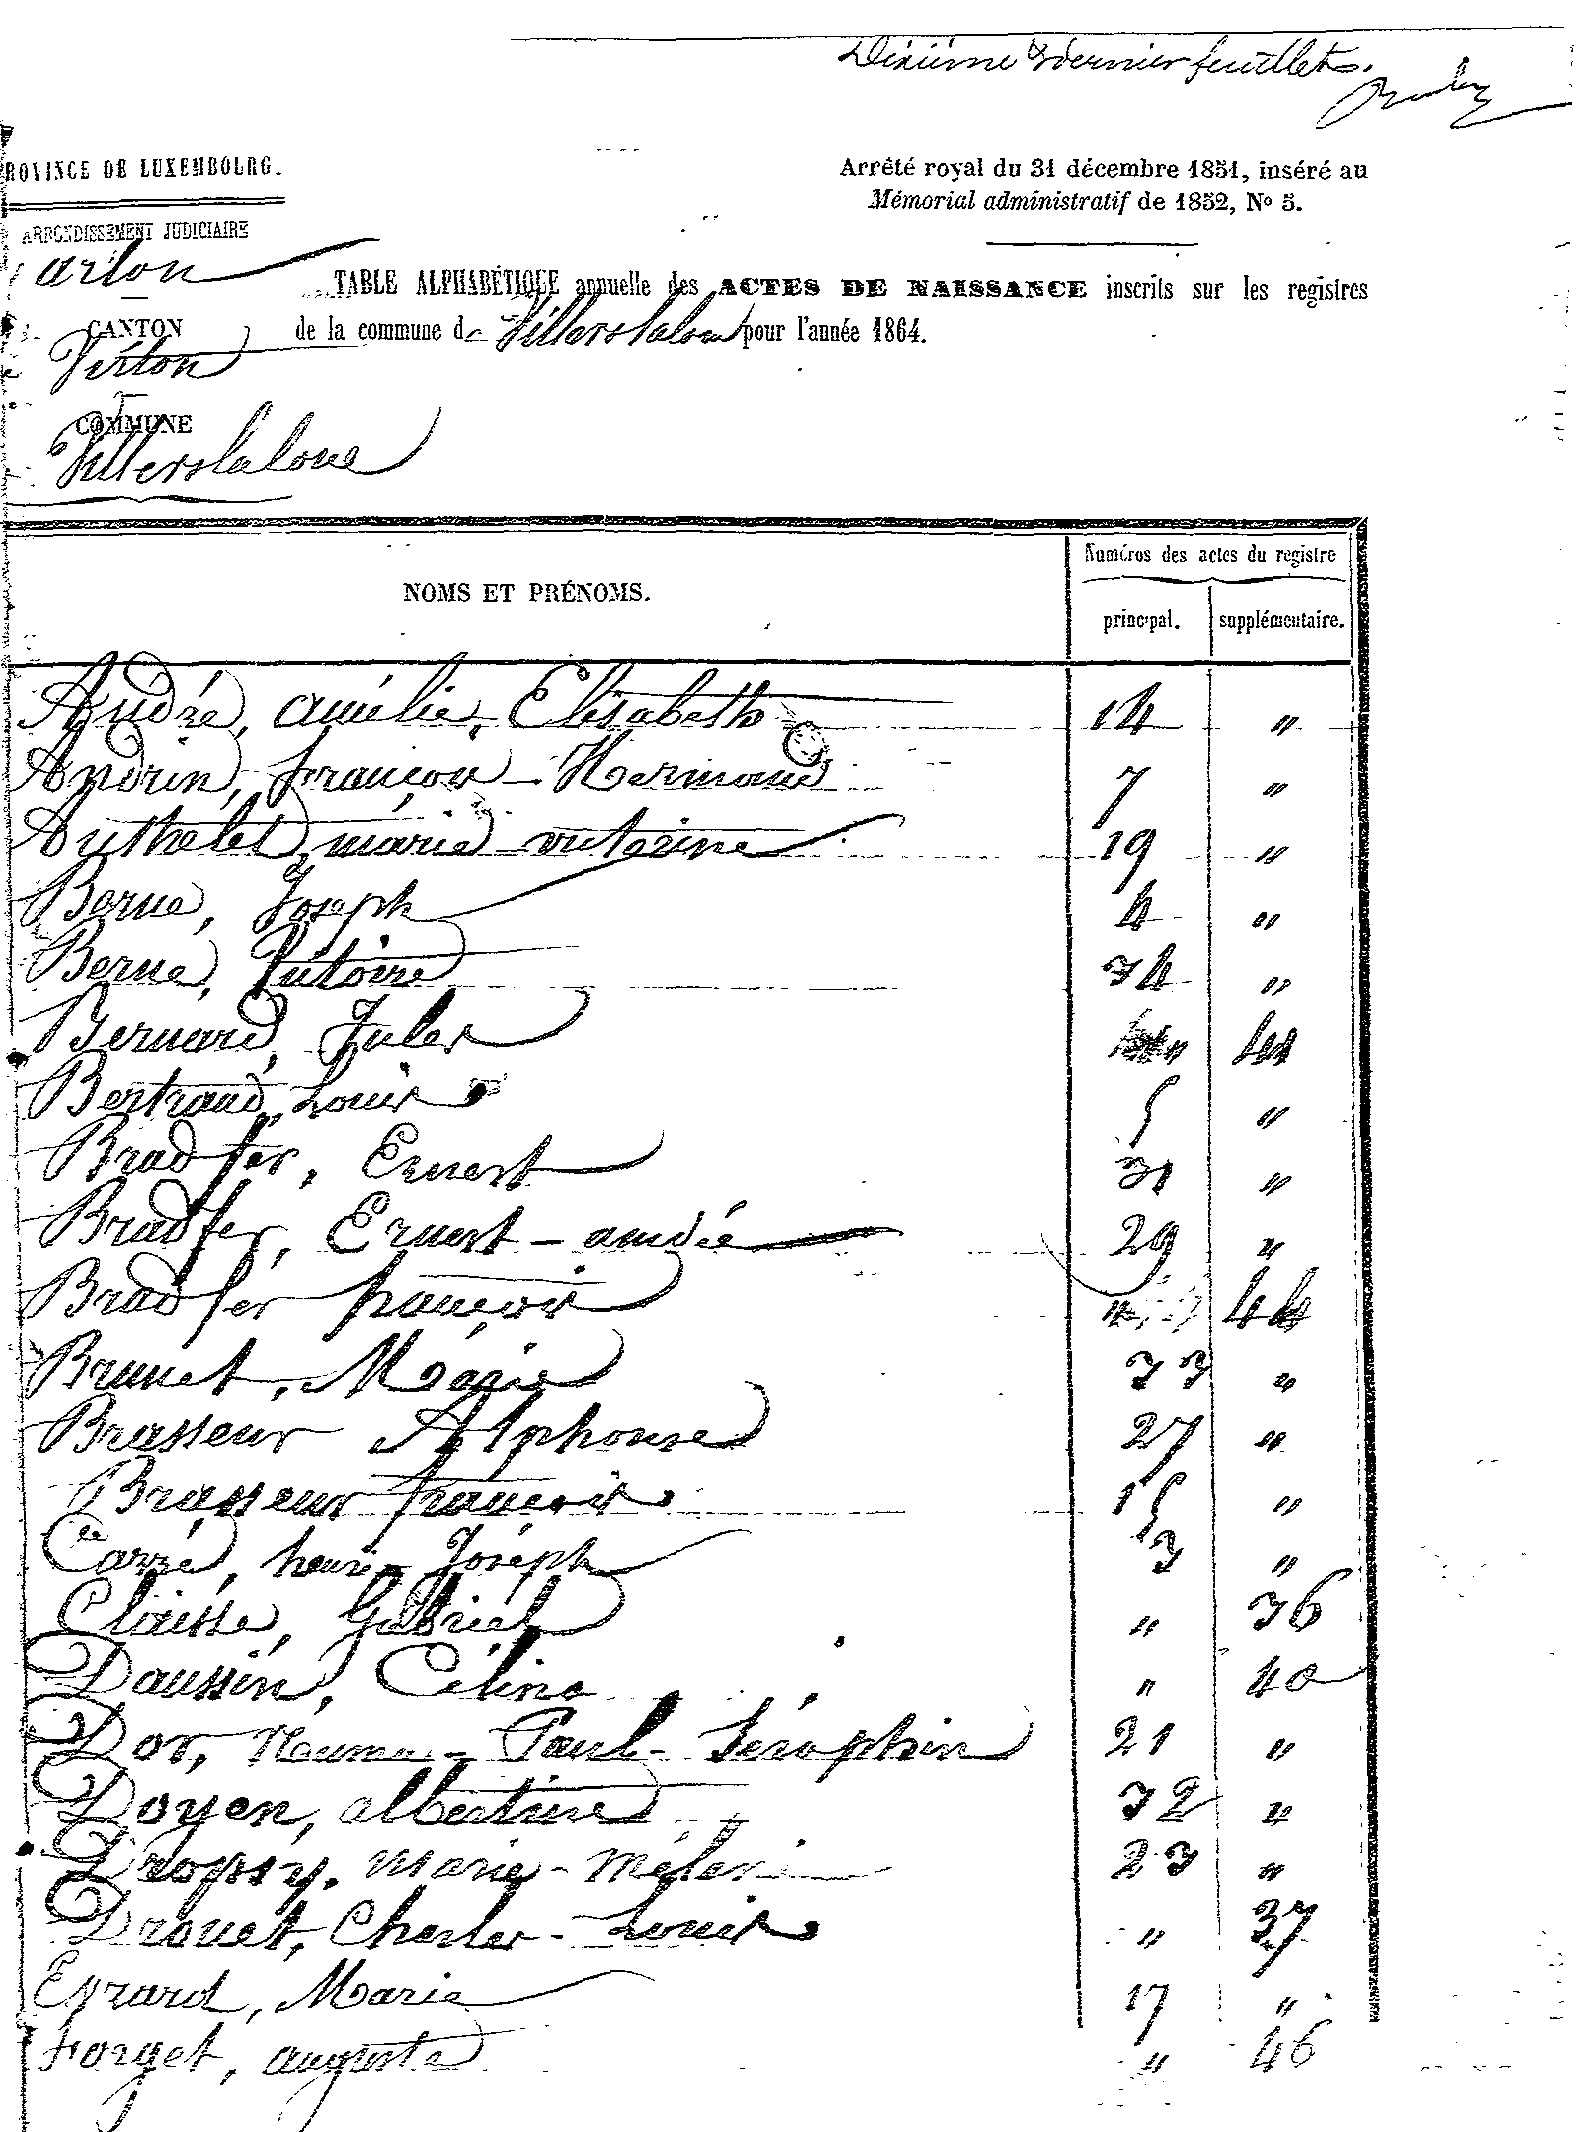 Dixième & dernier feuillets.
PROVINCE DE LUXEMBOURG.
Arrêté royal du 31 décembre 1851, inséré au
Mémorial administratif de 1852, No 5.
ARRONDISSEMENT JUDICIAIRE
arlon
TABLE ALPHABÉTIQUE annuelle des ACTES DE NAISSANCE inscrits sur les registres
de la commune de Villerslaloue pour l'année 1864.
CANTON
Virton
COMMUNE
Villerslaloue
NOMS ET PRÉNOMS.
Numéros des actes du registre
principal. supplémentaire.
André, Amélie, Elisabeth 14 "
Andrin, françois - Hermand 7 "
Authelet marie victorine 19 "
Berne, Joseph 4 "
Berne, Victoire 34 "
Bernard, Jules " 41
Bertrand, Louis 5 "
Bradfer, Ernest 31 "
Bradfer, Ernest - andré 29 "
Bradfer françois " 44
Brunet, Marie 33 "
Brasseur Alphonse 27 "
Brasseur françois 15 "
Carré, henri Joseph 3 "
Claisse, Gabriel " 36
Daussin, Célina " 40
Dor, Numa - Paul - Séraphin 21 "
Doyen, albertine 32 "
Dropsy, Marie - 23 "
Drouet, Charles - Louis " 37
Evrard, Marie 17 "
Forget, auguste " 46